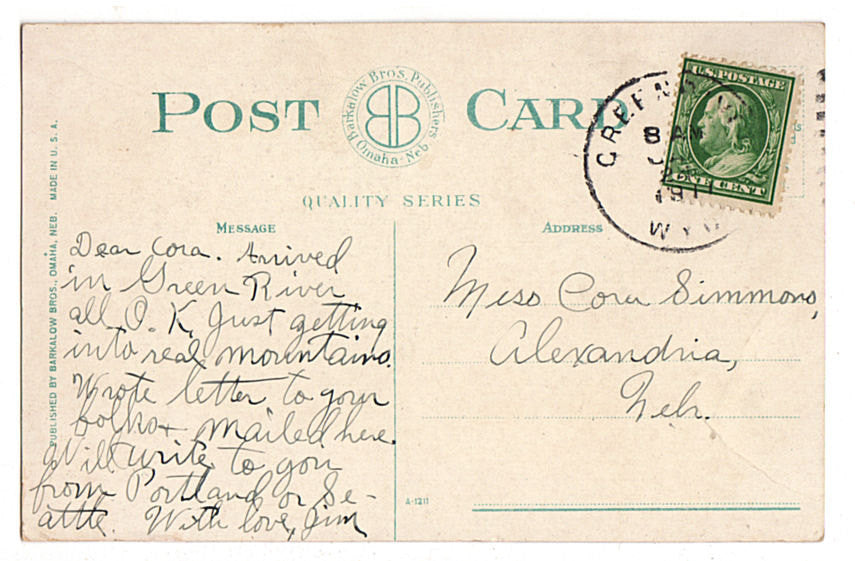 POST CARD
Barkalow Bros. Publishers
Omaha-Neb.
QUALITY SERIES
U.S. POSTAGE
ONE CENT
GREEN
8 AM
1911
WYO
PUBLISHED BY BARKALOW BROS., OMAHA, NEB. MADE IN U. S. A.
MESSAGE
Dear Cora. Arrived
in Green River
all O. K. Just getting
into real mountains.
Wrote letter to your
folks + mailed here.
Will write to you
from Portland or Se-
attle. With love, Jim
ADDRESS
Miss Cora Simmons,
Alexandria,
Nebr.
A-1211